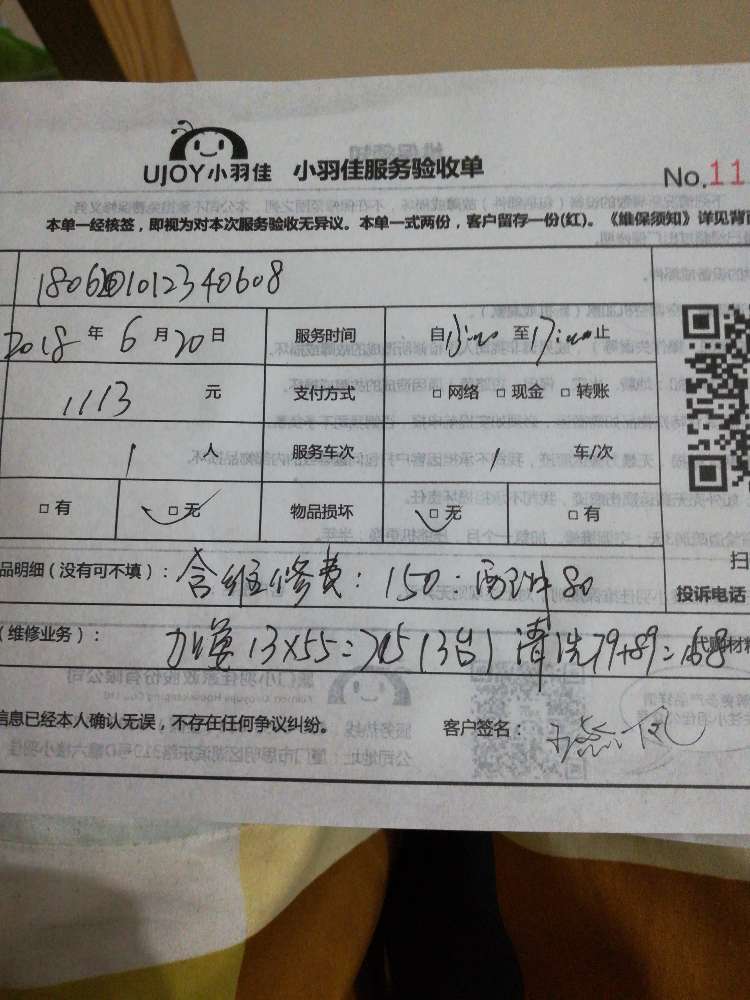 UJOY小羽佳 小羽佳服务验收单 No.11
本单一经核签，即视为对本次服务验收无异议。本单一式两份，客户留存一份(红)。《维保须知》详见背
1806201012340608
2018 年 6 月 20 日 服务时间 自13:00 至17:00止
1113 元 支付方式 □ 网络 □ 现金 □ 转账
1 人 服务车次 1 车/次
□ 有 □ 无 物品损坏 □ 无 □ 有
品明细（没有可不填）： 含维修费：150. 配件80
扫
投诉电话
（维修业务）： 加氟13×55=715(3台) 清洗79+89=168
信息已经本人确认无误，不存在任何争议纠纷。 客户签名：